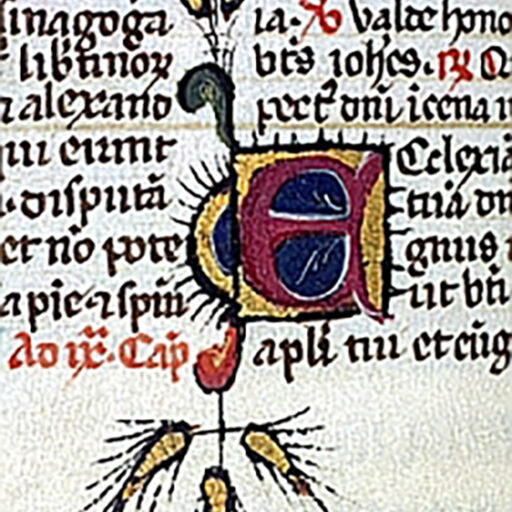 sinagoga
libtinoꝝ
⁊ alexand
qui eunt
⁊ disputā
et nō pote
apie ⁊ spiū
Ad ix. Cap̄
ia. valde hono
bt̄s ioh̄es.
pect̄ dn̄i icena
Eclexiā
tuā dn̄
gnus
ut bti
apli tui et eūg